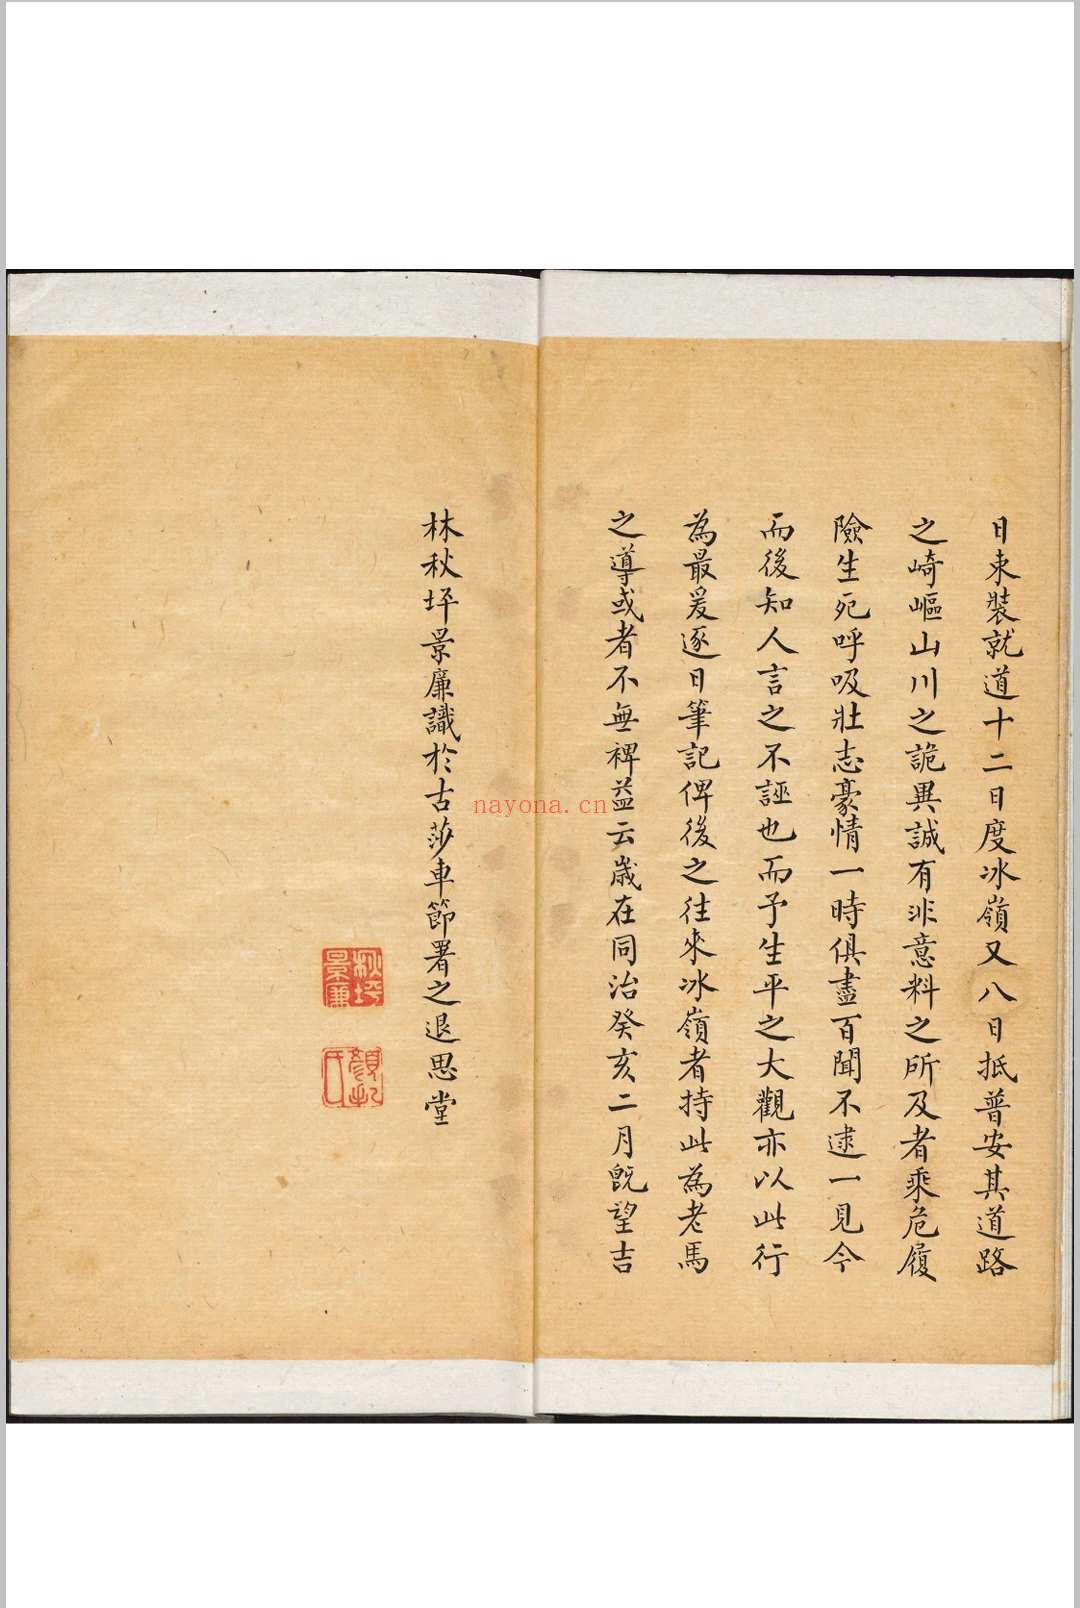 日束裝就道十二日度冰嶺又八日抵普安其道路
之崎嶇山川之詭異誠有非意料之所及者乘危履
險生死呼吸壯志豪情一時俱盡百聞不逮一見今
而後知人言之不誣也而予生平之大觀亦以此行
為最爰逐日筆記俾後之往來冰嶺者持此為老馬
之導或者不無裨益云歲在同治癸亥二月旣望吉
林秋坪景廉識於古莎車節署之退思堂
秋坪
景廉
顏札
氏
nayona.cn